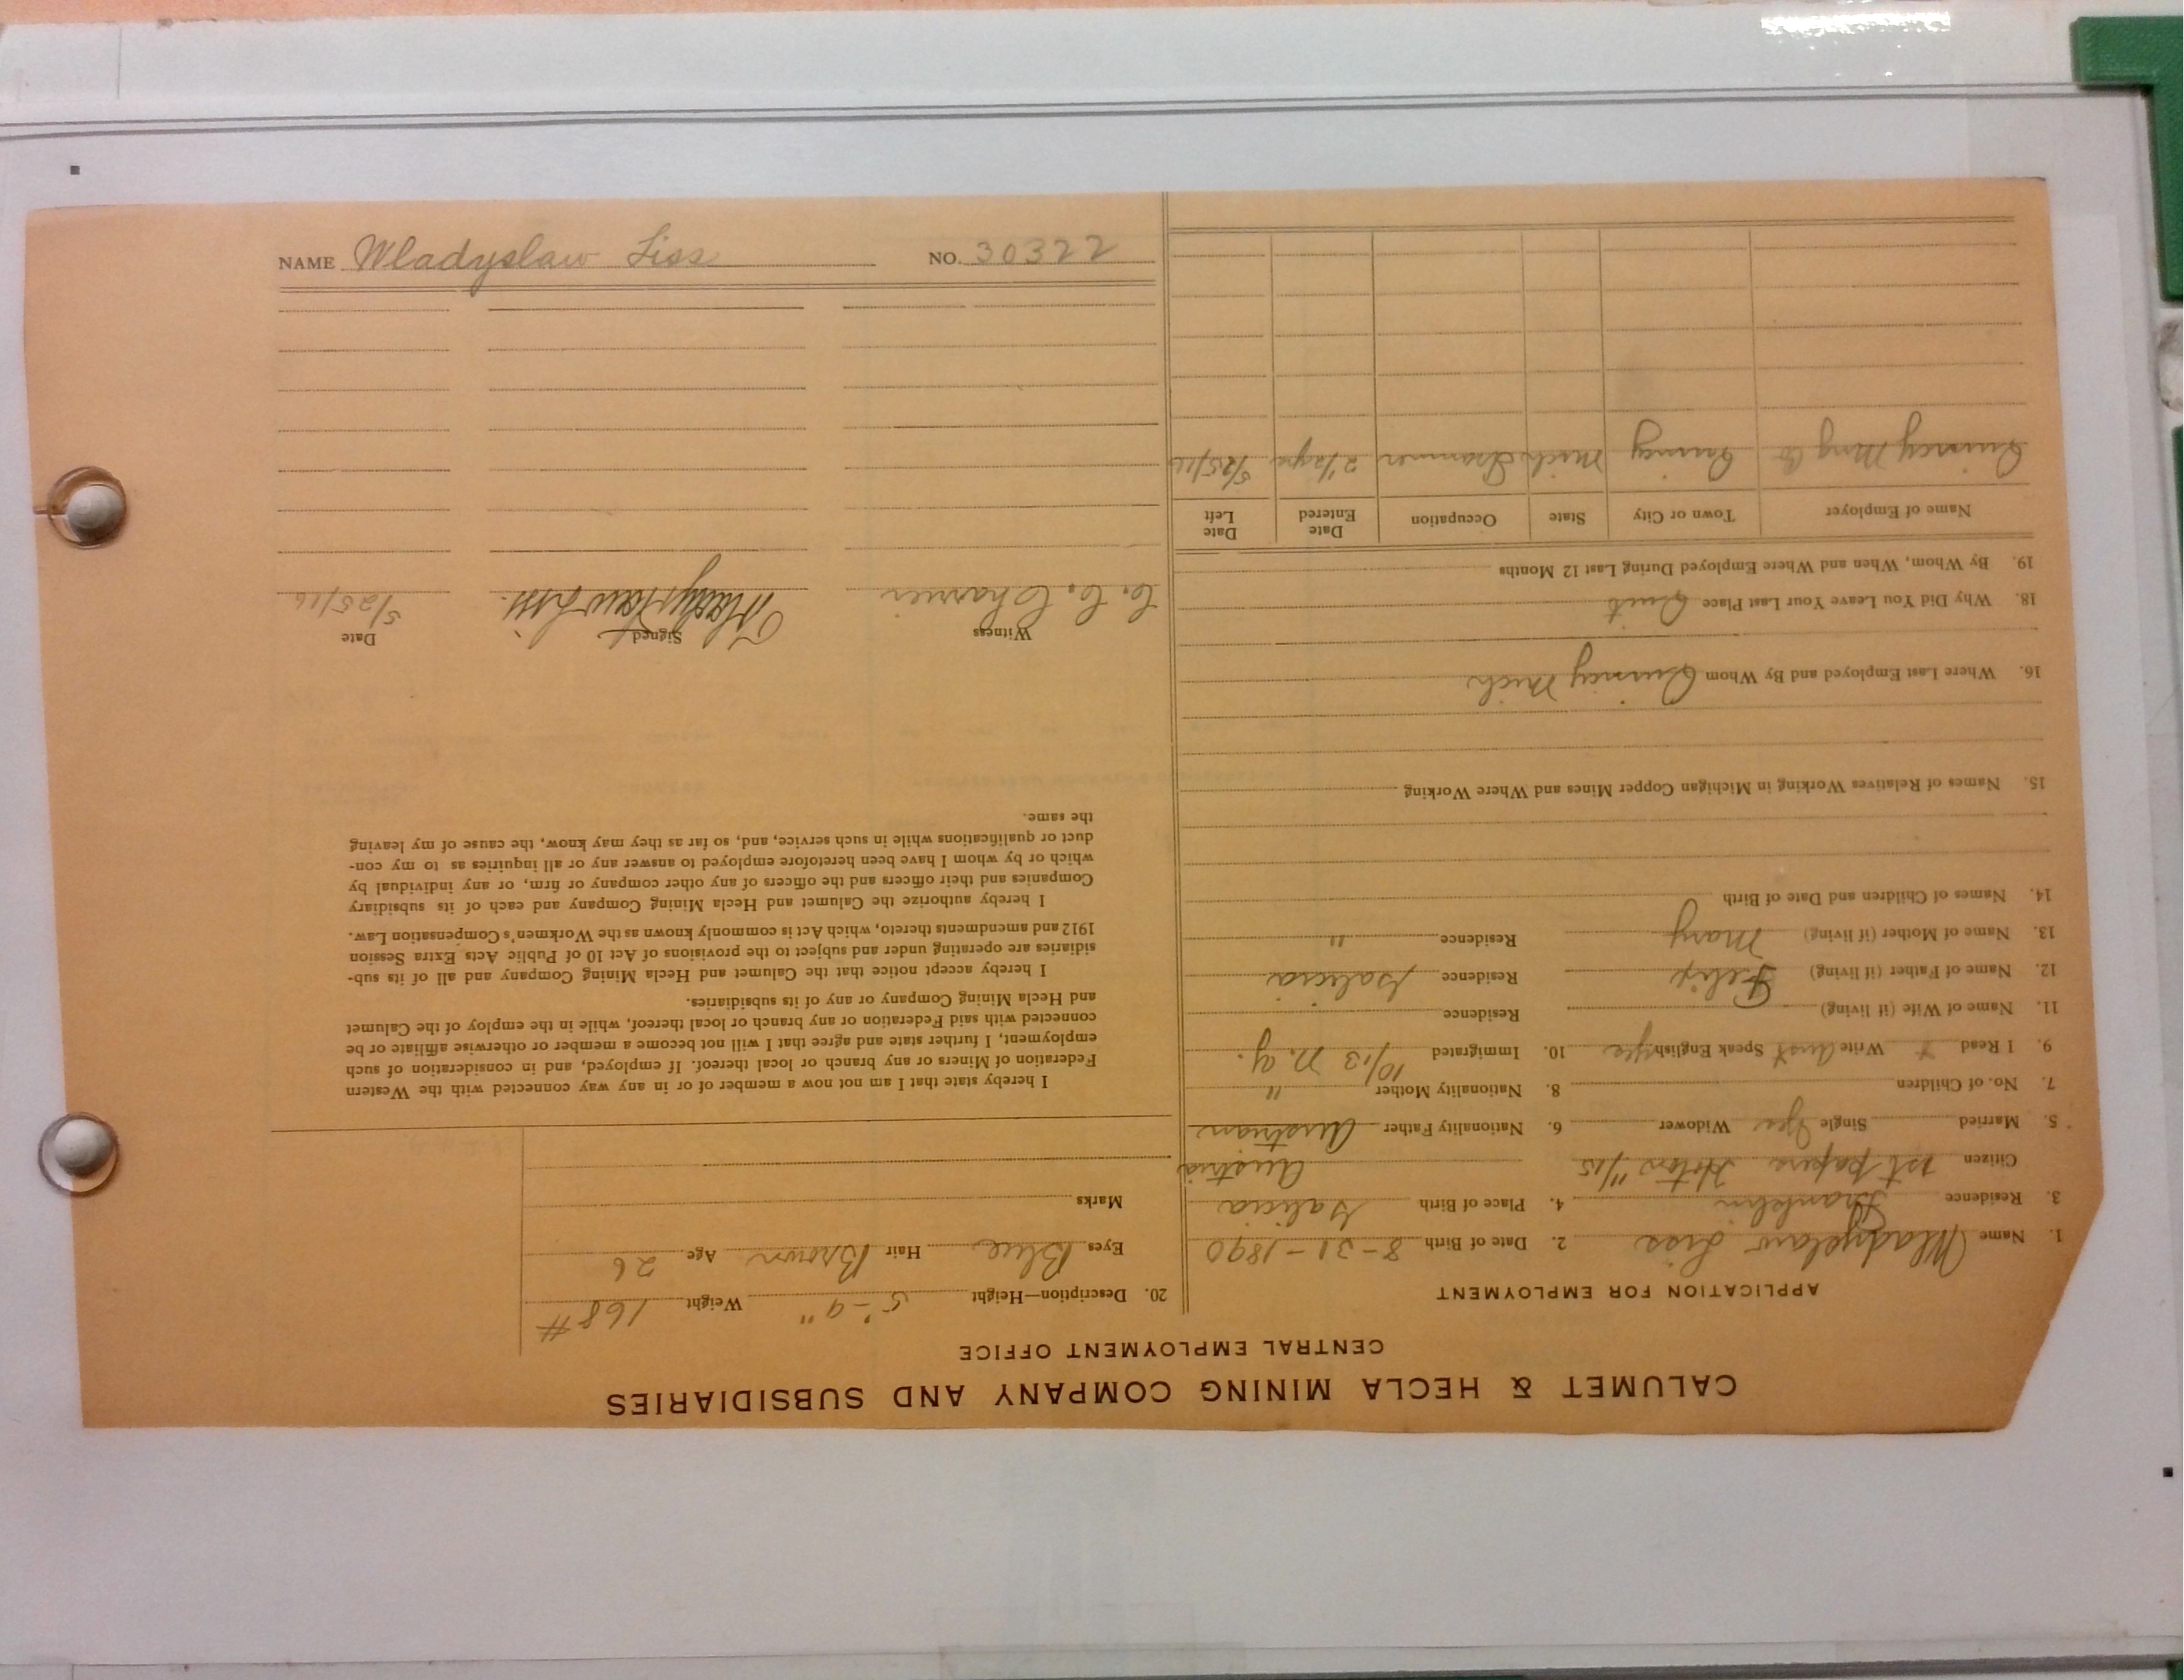 CALUMET & HECLA MINING COMPANY AND SUBSIDIARIES
CENTRAL EMPLOYMENT OFFICE
APPLICATION FOR EMPLOYMENT
1. Name Wladyslaw Liss 2. Date of Birth 8-31-1890
3. Residence Franklin 4. Place of Birth Galicia
Citizen 1st papers Hotn 11/15 Austria
5. Married Single Yes Widower 6. Nationality Father Austrian
7. No. of Children 8. Nationality Mother "
9. I Read + Write Aust Speak English yes 10. Immigrated 10/13 N.Y.
11. Name of Wife (if living) Residence
12. Name of Father (if living) Felix Residence Galicia
13. Name of Mother (if living) Mary Residence "
14. Names of Children and Date of Birth
15. Names of Relatives Working in Michigan Copper Mines and Where Working
16. Where Last Employed and By Whom Quincy Mich
18. Why Did You Leave Your Last Place Quit
19. By Whom, When and Where Employed During Last 12 Months
Name of Employer Town or City State Occupation Date Entered Date Left
Quincy Mng Co Quincy Mich Trammer 2 1/2 yrs 5/25/16
20. Description—Height 5'-9" Weight 168#
Eyes Blue Hair Brown Age 26
Marks
I hereby state that I am not now a member of or in any way connected with the Western
Federation of Miners or any branch or local thereof. If employed, and in consideration of such
employment, I further state and agree that I will not become a member or otherwise affiliate or be
connected with said Federation or any branch or local thereof, while in the employ of the Calumet
and Hecla Mining Company or any of its subsidiaries.
I hereby accept notice that the Calumet and Hecla Mining Company and all of its sub-
sidiaries are operating under and subject to the provisions of Act 10 of Public Acts Extra Session
1912 and amendments thereto, which Act is commonly known as the Workmen's Compensation Law.
I hereby authorize the Calumet and Hecla Mining Company and each of its subsidiary
Companies and their officers and the officers of any other company or firm, or any individual by
which or by whom I have been heretofore employed to answer any or all inquiries as to my con-
duct or qualifications while in such service, and, so far as they may know, the cause of my leaving
the same.
Witness Signed Date
C. C. Charrier Wladyslaw Liss. 5/25/16
NAME Wladyslaw Liss NO. 30322